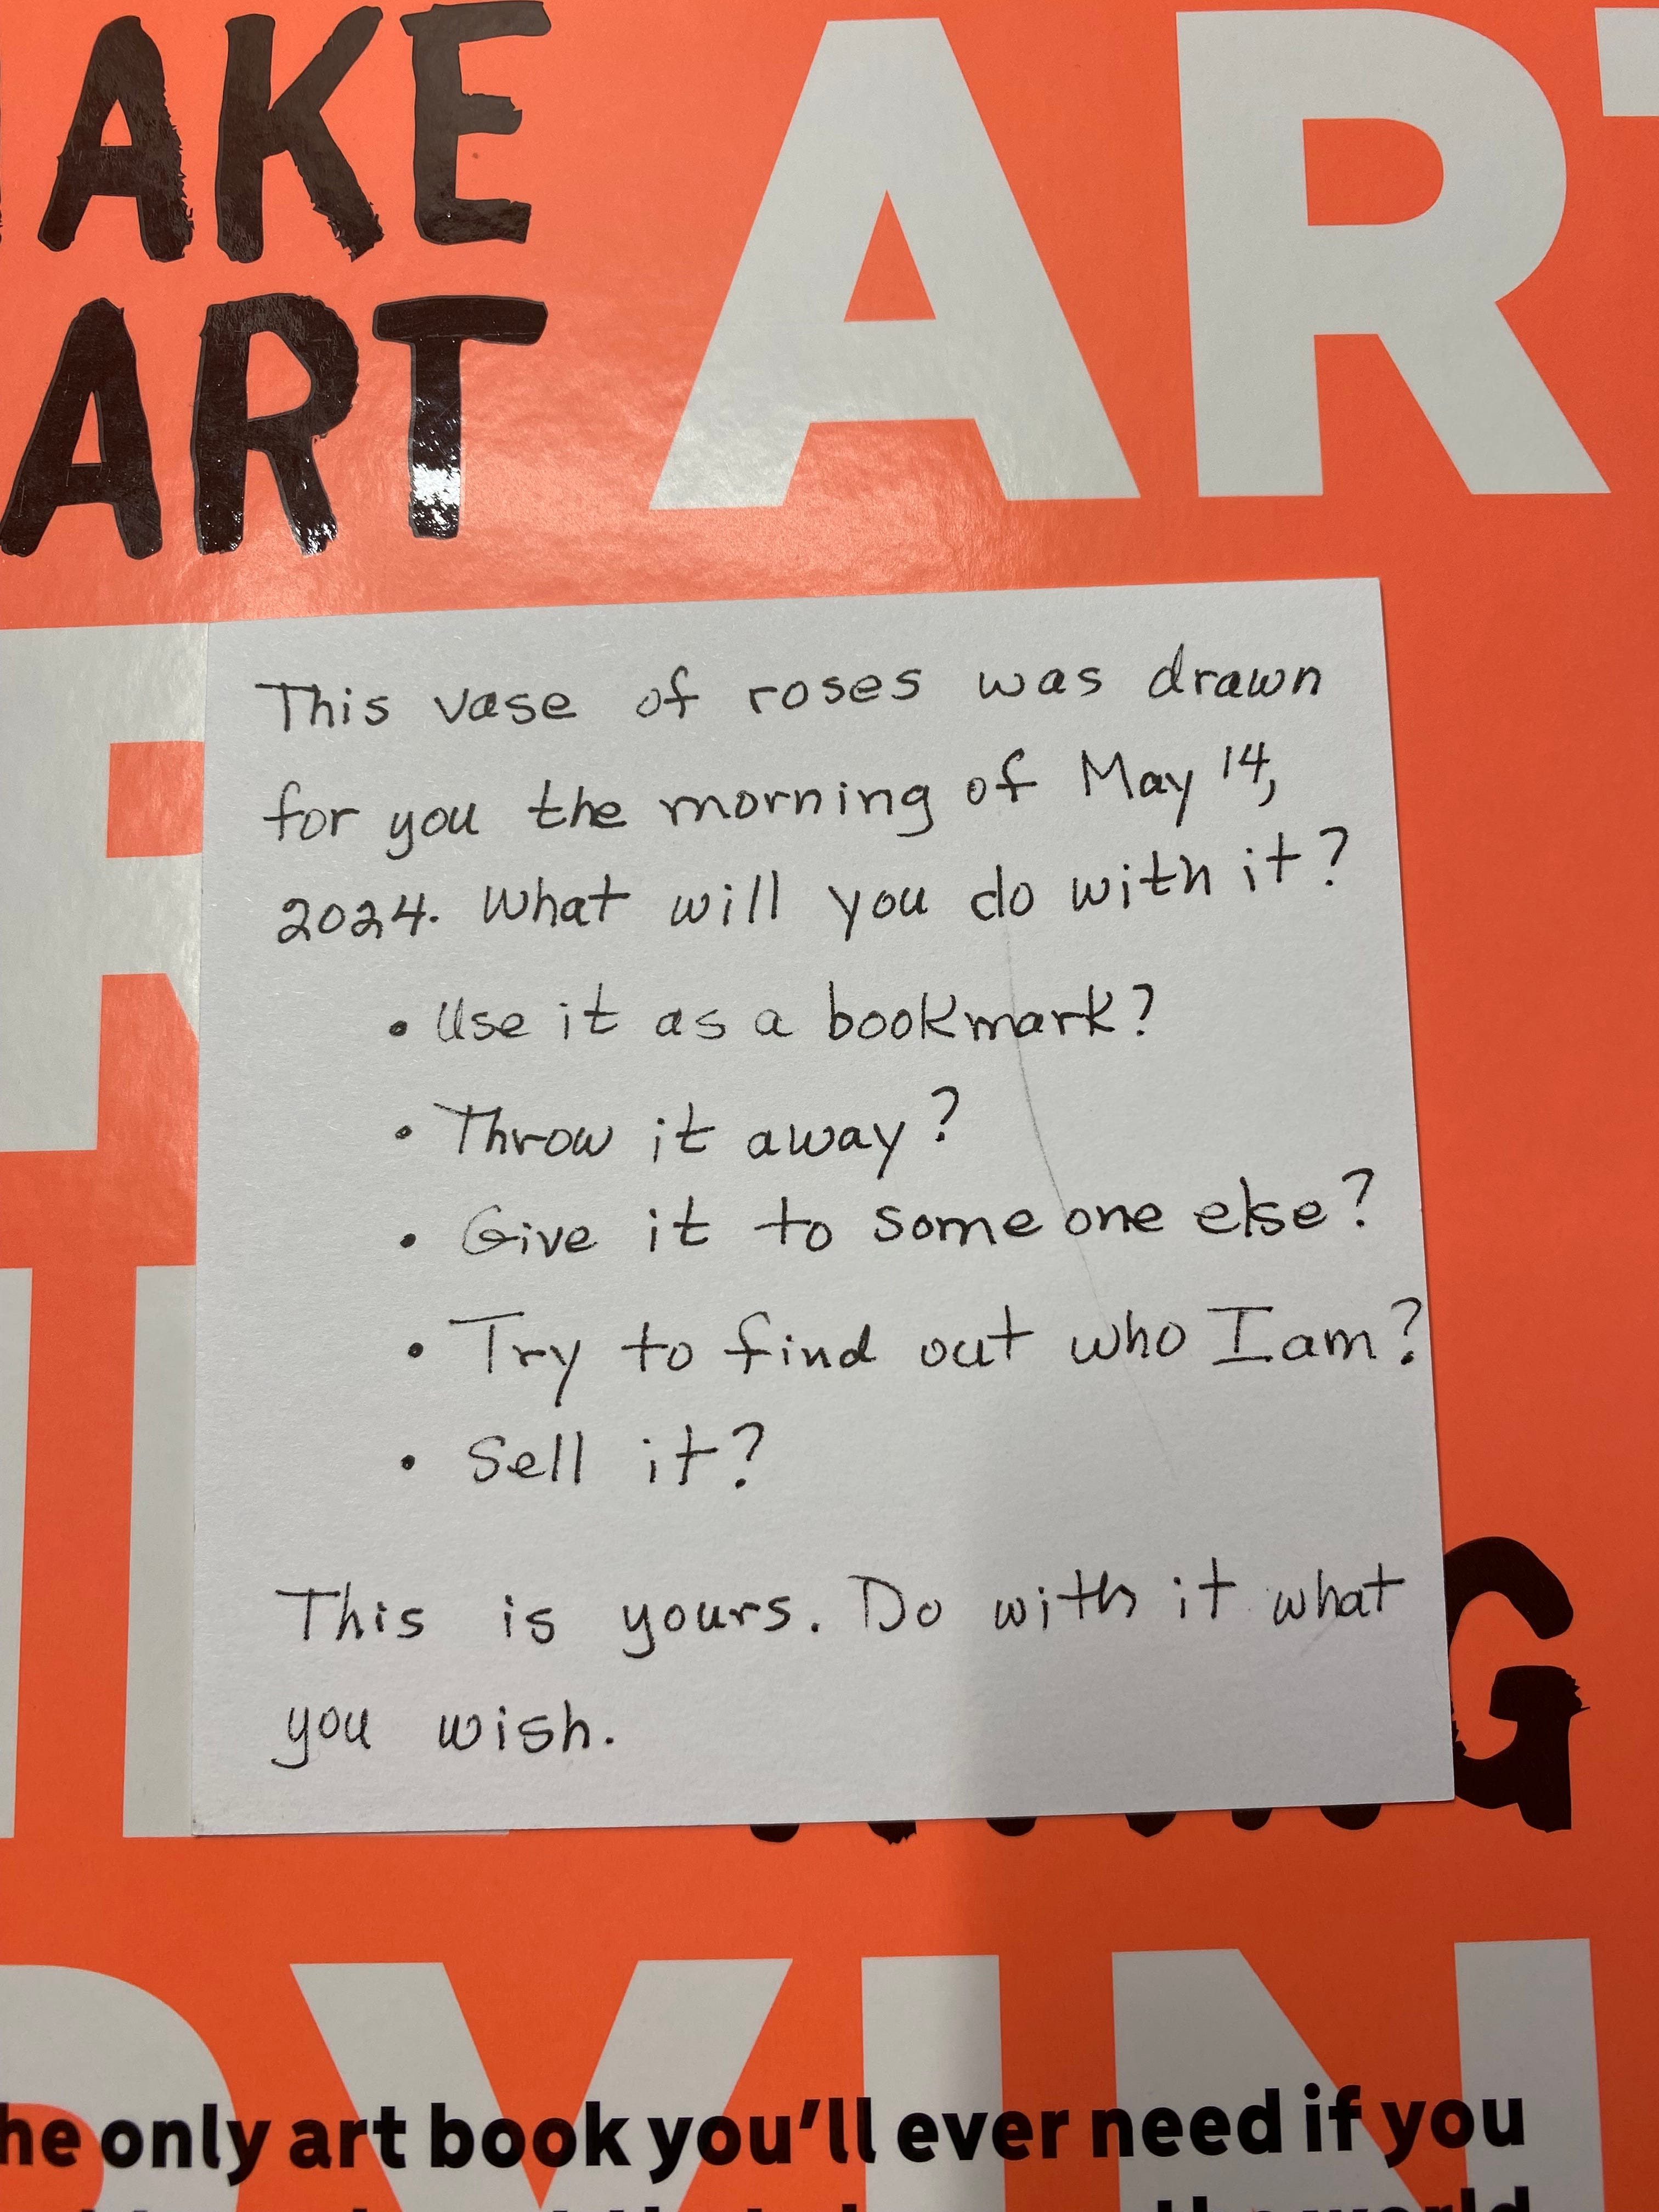 AKE
ART
ART
This vase of roses was drawn
for you the morning of May 14,
2024. What will you do with it?
• Use it as a bookmark?
• Throw it away?
• Give it to someone else?
• Try to find out who I am?
• Sell it?
This is yours. Do with it what
you wish.
G
he only art book you'll ever need if you
the world